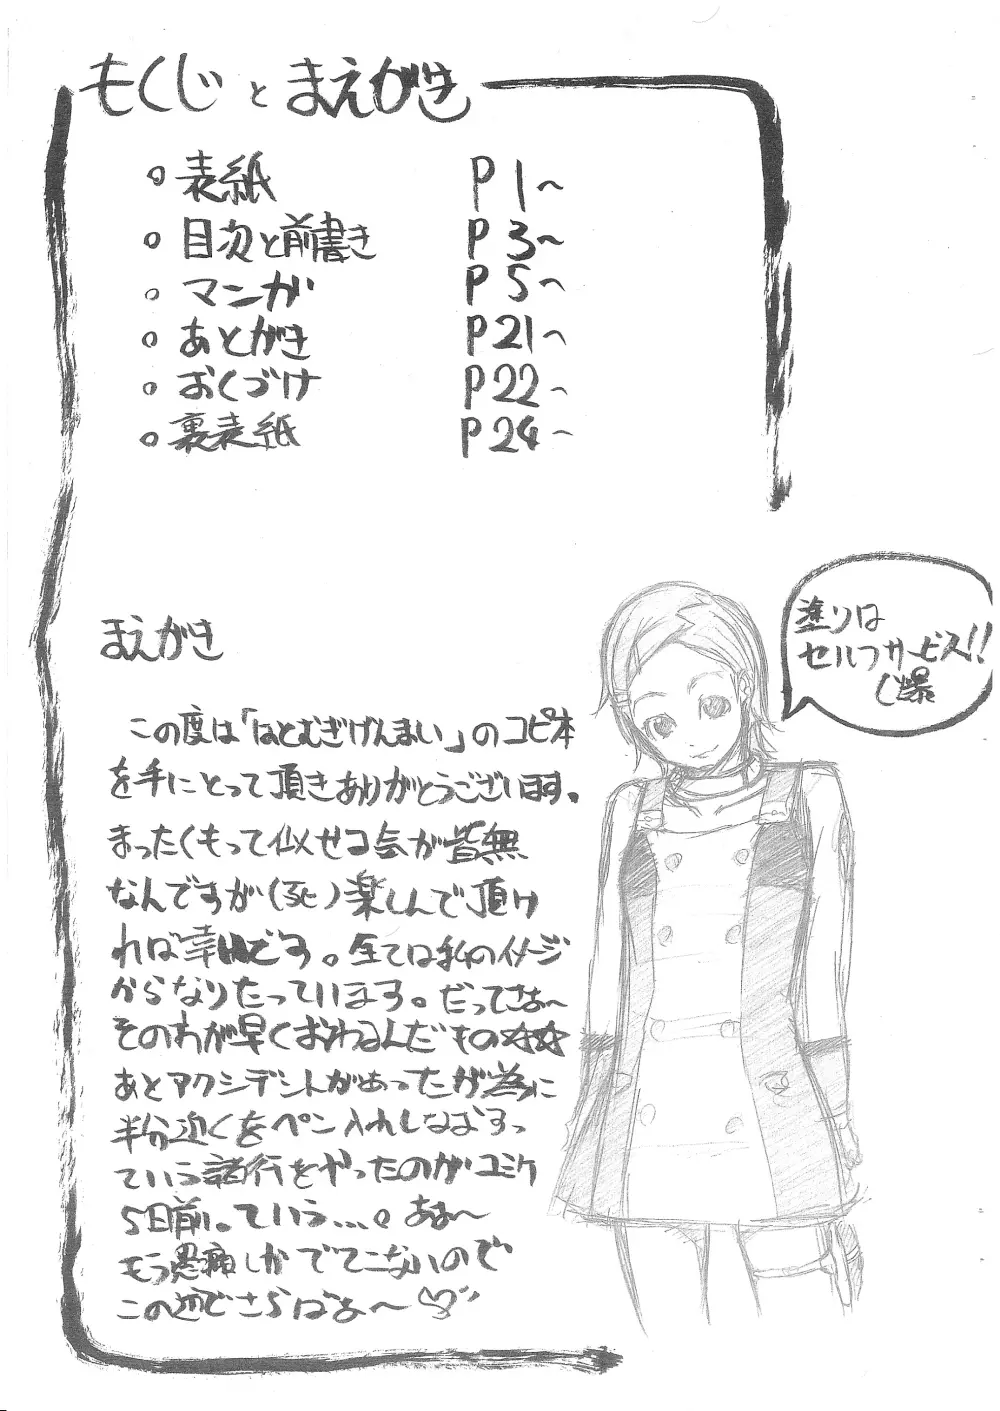 もくじ と まえがき
○ 表紙 P1~
○ 目次と前書き P3~
○ マンガ P5~
○ あとがき P21~
○ おくづけ P22~
○ 裏表紙 P24~
塗りは
セルフサービス!!
(爆
まえがき
この度は「はとむぎげんまい」のコピ本
を手にとって頂きありがとうございます。
まったくもって似せコ会が皆無
なんですが(死)楽しんで頂け
れば幸いです。全ては私のイメージ
からなりたっています。だってさぁ~
そのわが早くおわるんだもの☆☆
あとアクシデントがあったが為に
半分近くをペン入れしなおすっ
ていう諸行をやったのがコミケ
5日前。ていう...。ああ~
もう愚痴しかでてこないので
この辺でさらばよ~♡